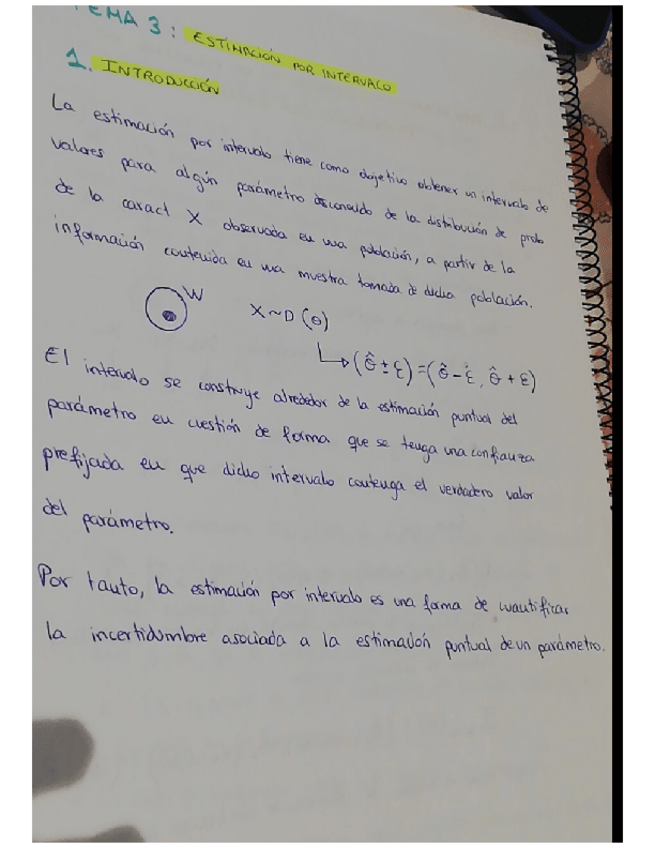 TEMA 3: ESTIMACIÓN POR INTERVALO
1. INTRODUCCIÓN
La estimación por intervalo tiene como objetivo obtener un intervalo de
valores para algún parámetro desconocido de la distribución de prob
de la caract X observada en una población, a partir de la
información contenida en una muestra tomada de dicha población.
W
X~D (θ)
↳ (θ̂ ± ε) = (θ̂ - ε, θ̂ + ε)
El intervalo se construye alrededor de la estimación puntual del
parámetro en cuestión de forma que se tenga una confianza
prefijada en que dicho intervalo contenga el verdadero valor
del parámetro.
Por tanto, la estimación por intervalo es una forma de cuantificar
la incertidumbre asociada a la estimación puntual de un parámetro.